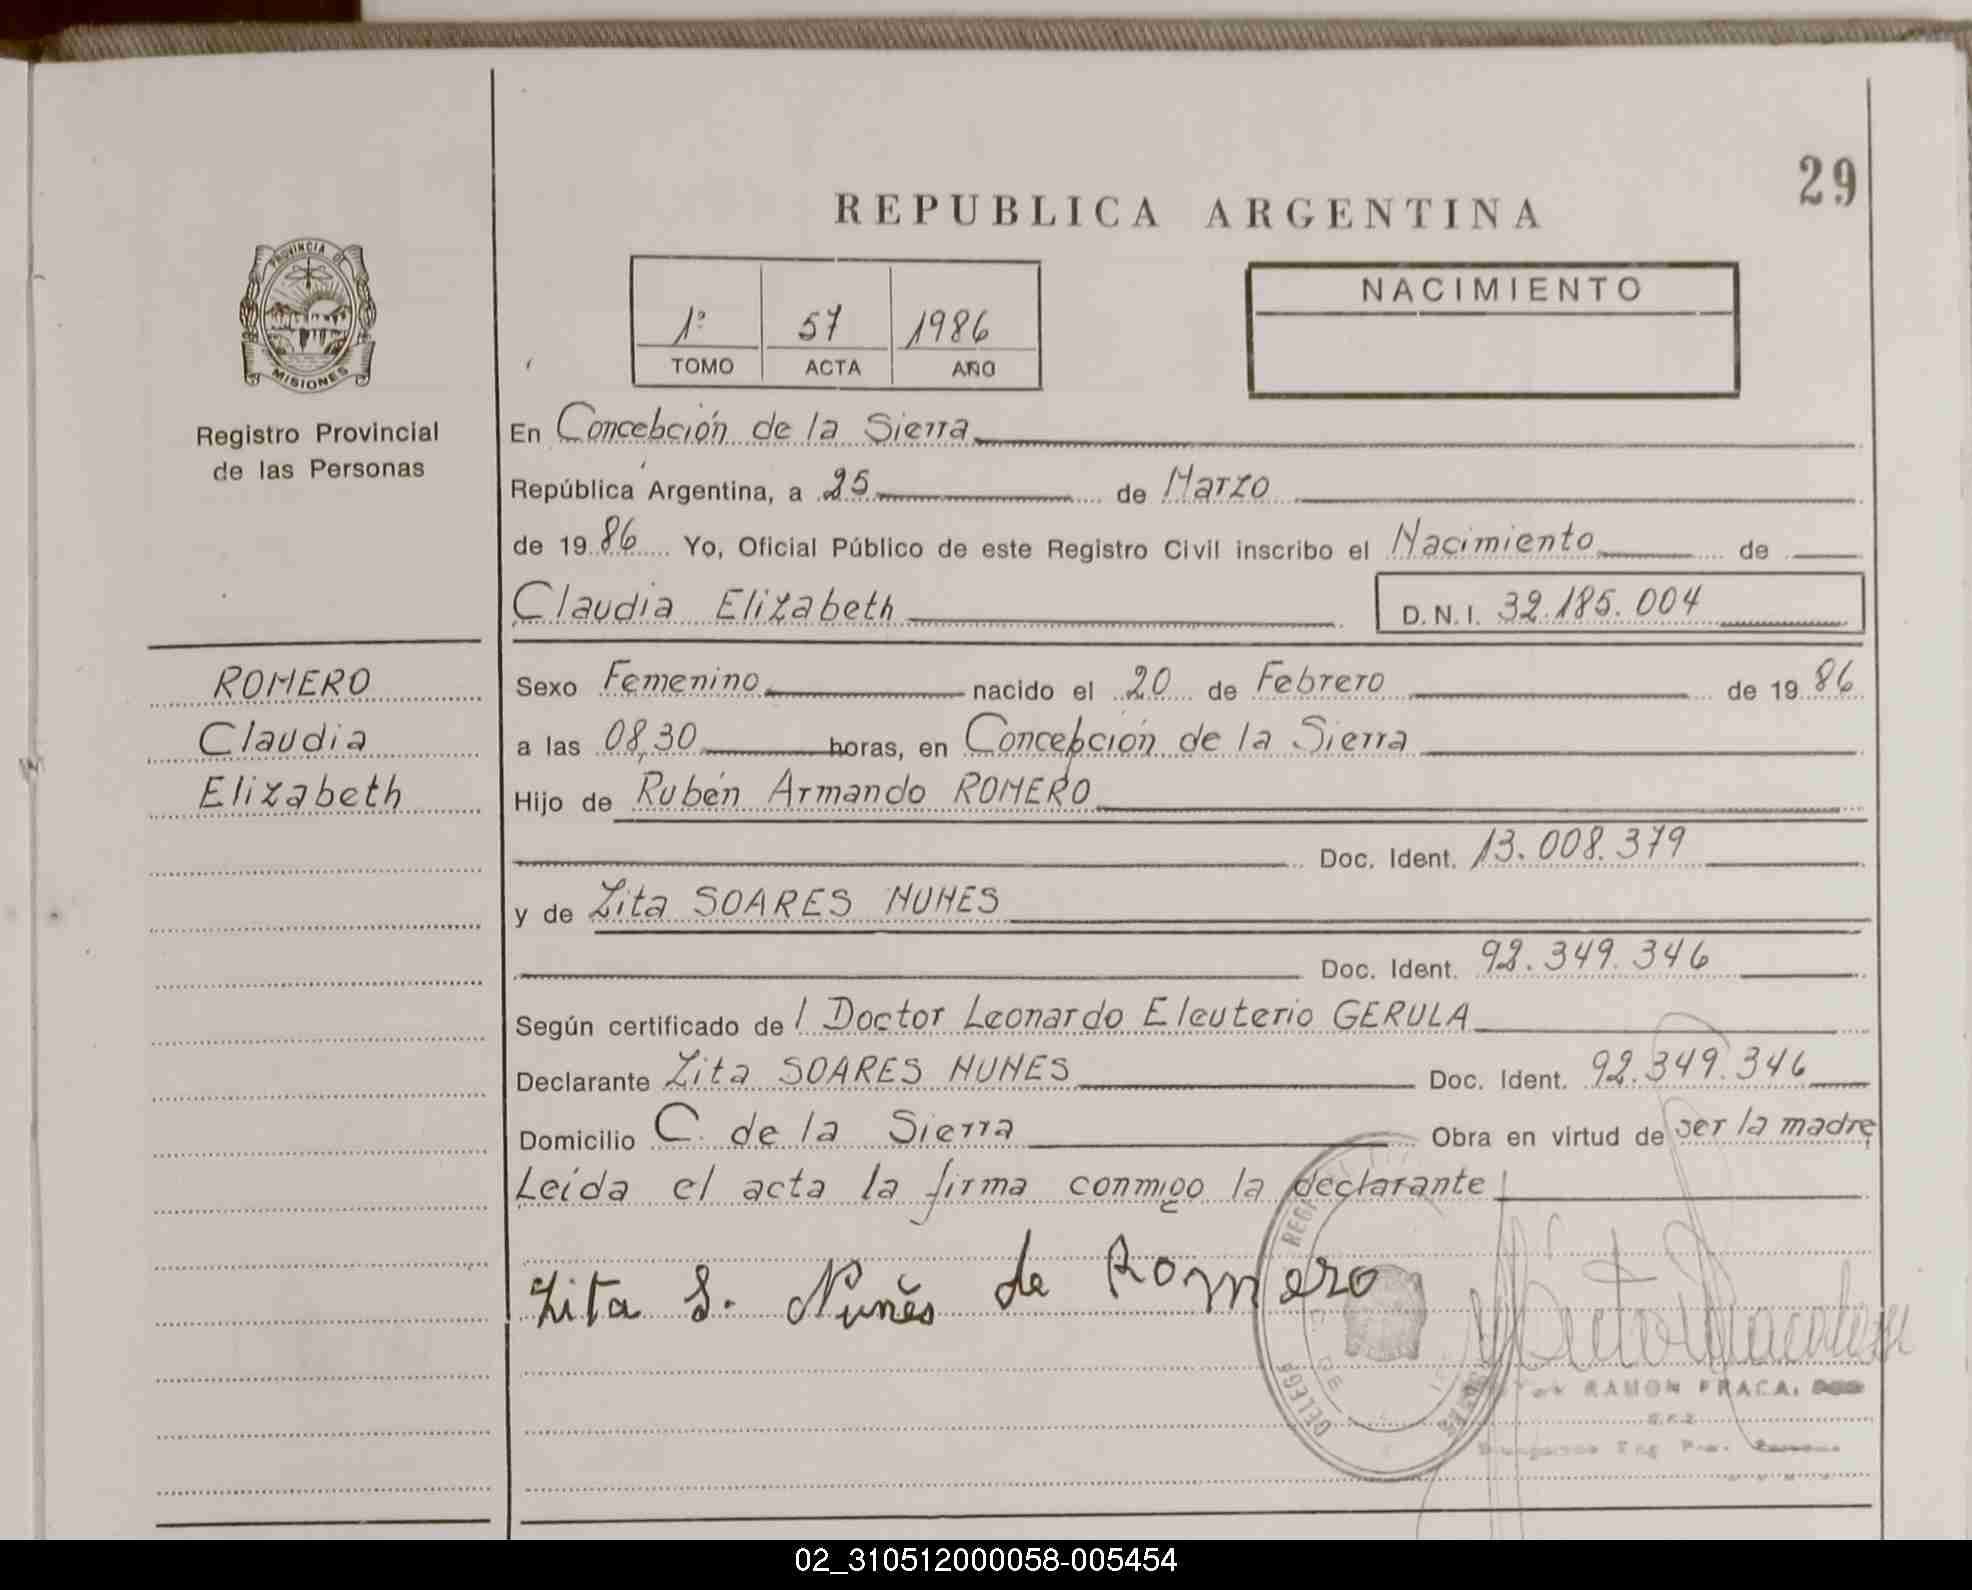 29
REPUBLICA ARGENTINA
PROVINCIA DE
MISIONES
Registro Provincial
de las Personas
1º 57 1986
TOMO ACTA AÑO
NACIMIENTO
En Concebción de la Sierra
República Argentina, a 25 de Marzo
de 1986 Yo, Oficial Público de este Registro Civil inscribo el Nacimiento de
Claudia Elizabeth D.N.I. 32.185.004
ROMERO
Claudia
Elizabeth
Sexo Femenino nacido el 20 de Febrero de 1986
a las 08,30 horas, en Concebción de la Sierra
Hijo de Rubén Armando ROMERO
Doc. Ident. 13.008.379
y de Zita SOARES NUNES
Doc. Ident. 92.349.346
Según certificado de l Doctor Leonardo Eleuterio GERULA
Declarante Zita SOARES NUNES Doc. Ident. 92.349.346
Domicilio C. de la Sierra Obra en virtud de ser la madre
Leída el acta la firma conmigo la declarante
Zita S. Nunes de Romero
RAMON
02_310512000058-005454